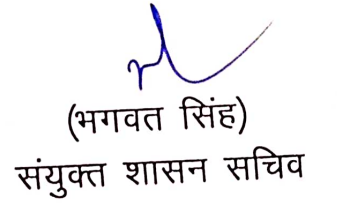 (भगवत सिंह)
संयुक्त शासन सचिव